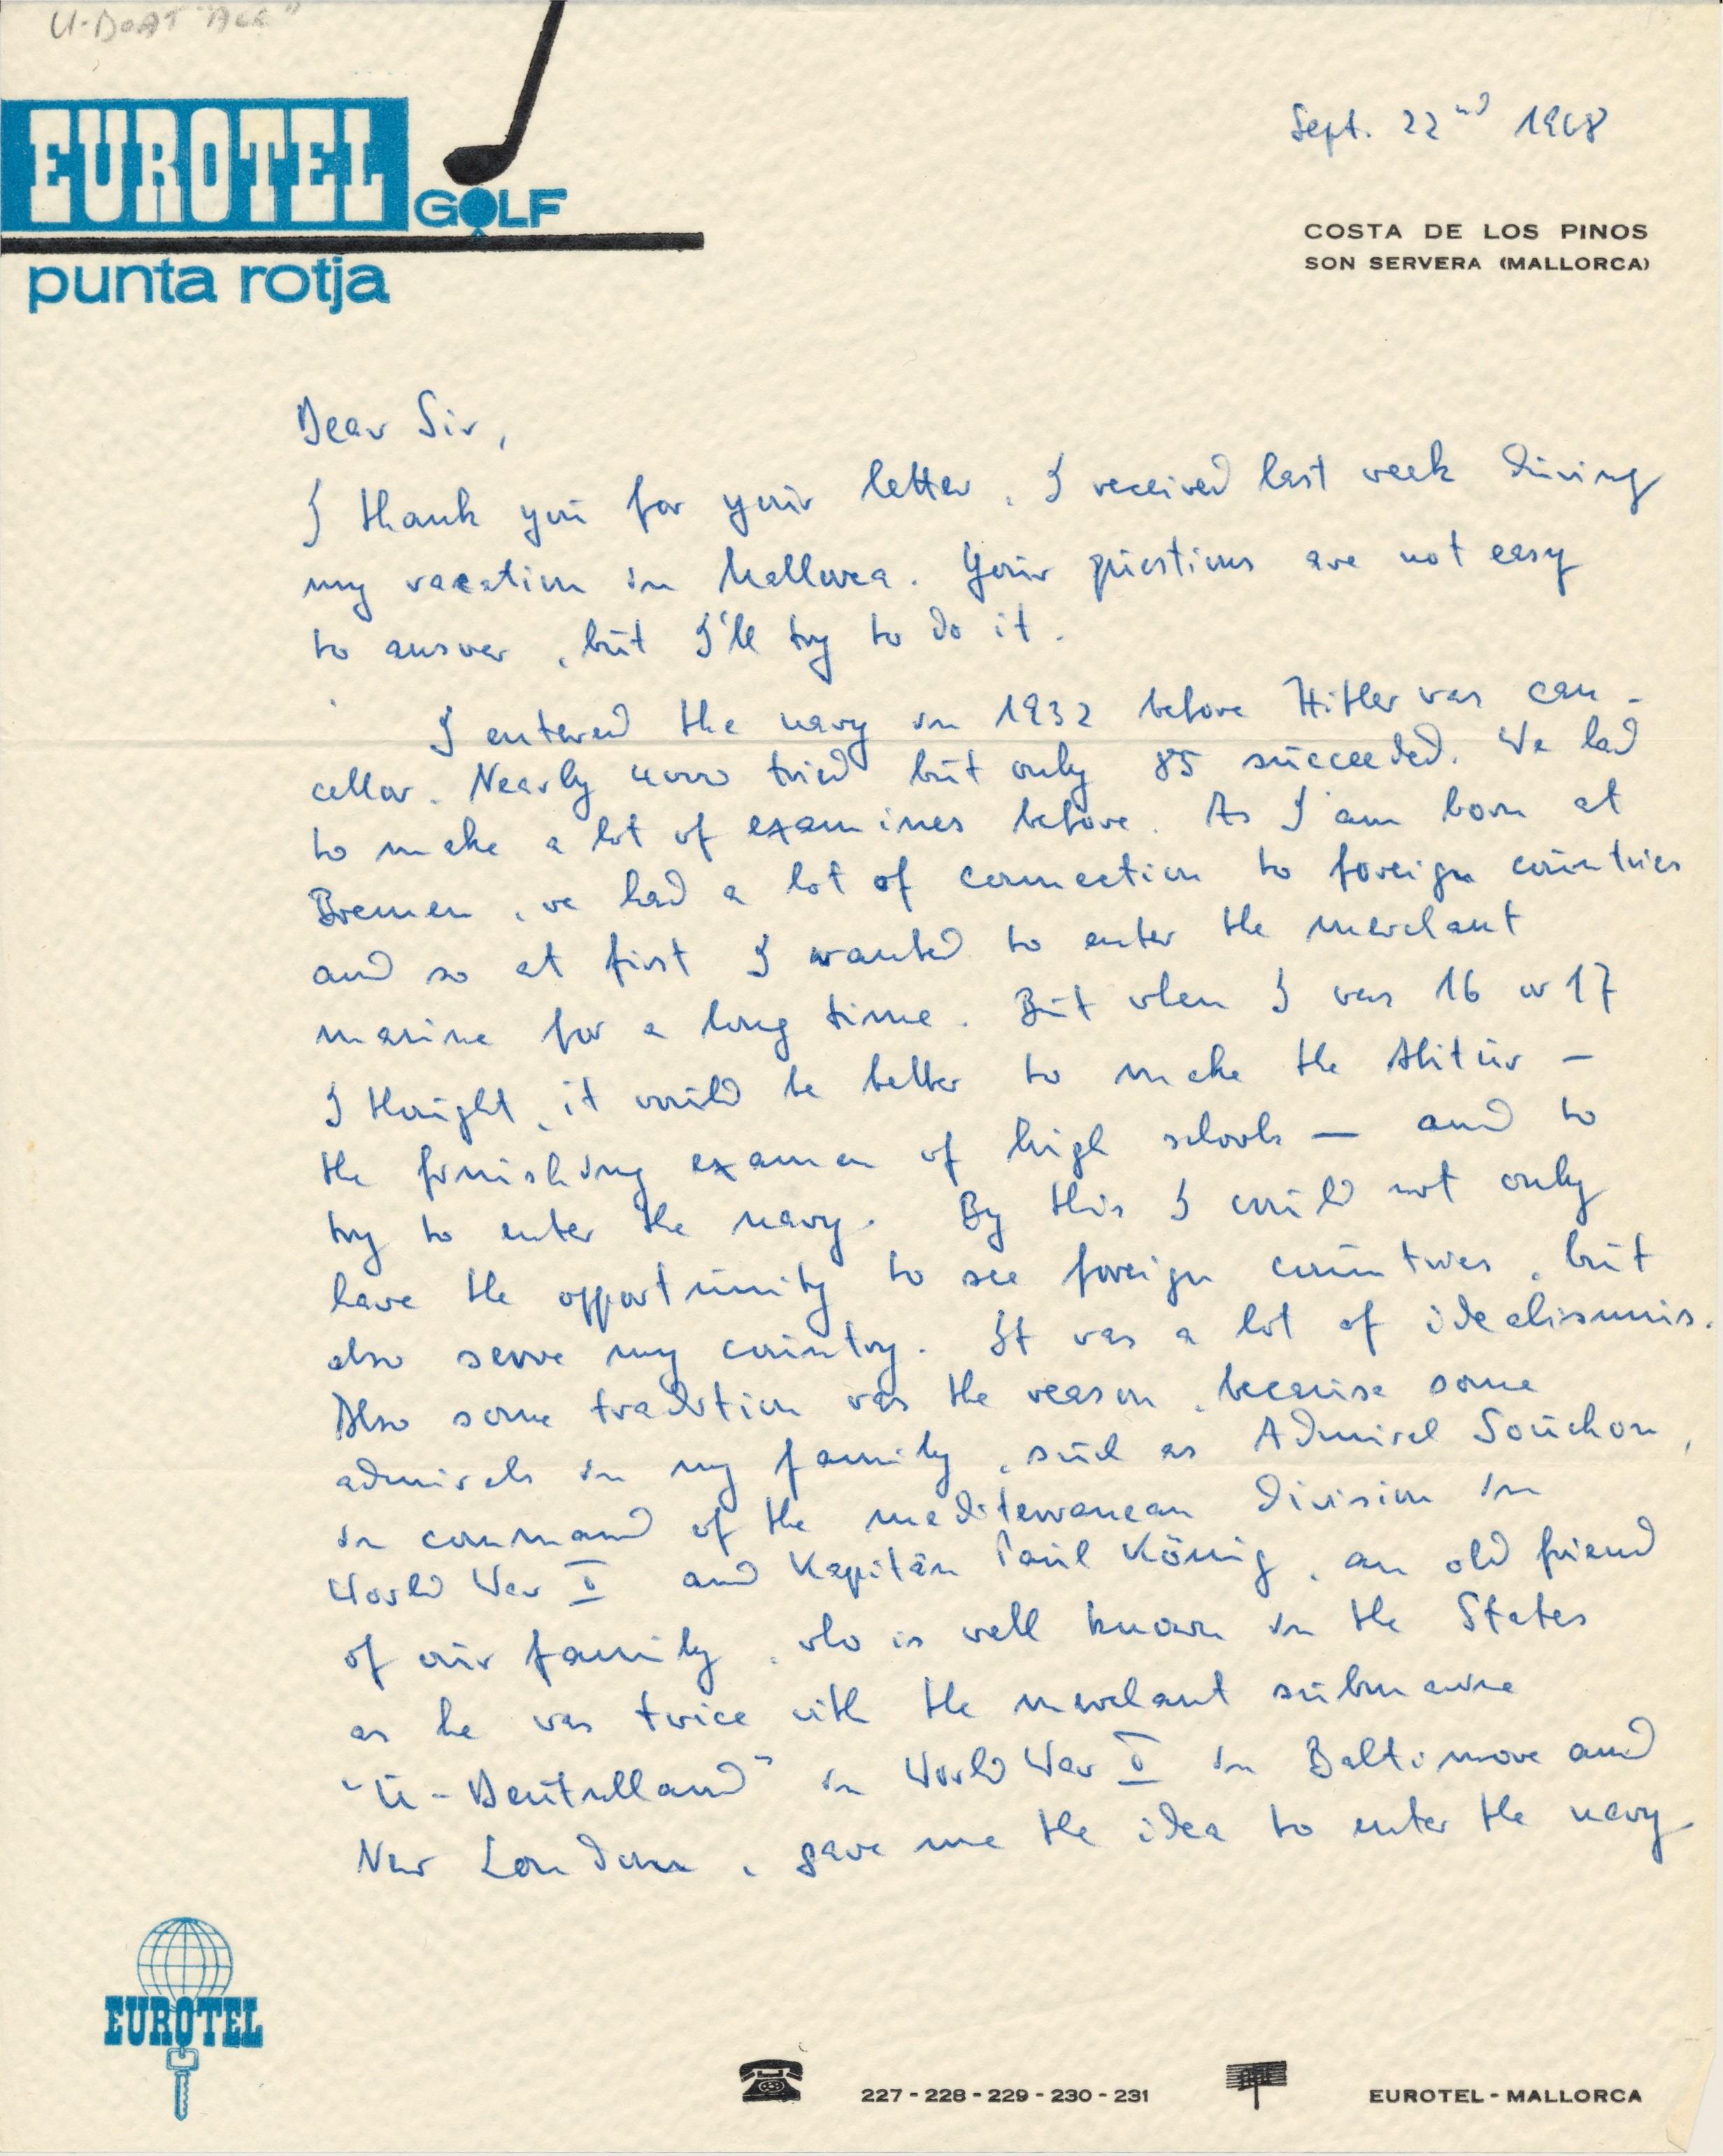 U-BOAT "ACE"
EUROTEL
GOLF
punta rotja
Sept. 22nd 1968
COSTA DE LOS PINOS
SON SERVERA (MALLORCA)
Dear Sir,
I thank you for your letter, I received last week during
my vacation in Mallorca. Your questions are not easy
to answer, but I'll try to do it.
I entered the navy in 1932 before Hitler was can-
cellor. Nearly 4000 tried but only 85 succeeded. We had
to make a lot of examines before. As I am born at
Bremen, we had a lot of connection to foreign countries
and so at first I wanted to enter the merchant
marine for a long time. But when I was 16 or 17
I thought, it would be better to make the Abitur –
the finishing examen of high schools — and to
try to enter the navy. By this I could not only
have the opportunity to see foreign countries, but
also serve my country. It was a lot of idealismus.
Also some tradition was the reason, because some
admirals in my family, such as Admiral Souchon,
in command of the mediterranean division in
World War I and Kapitän Paul König, an old friend
of our family, who is well known in the States
as he was twice with the merchant submarine
"U-Deutschland" in World War I in Baltimore and
New London, gave me the idea to enter the navy
EUROTEL
227 - 228 - 229 - 230 - 231
EUROTEL - MALLORCA